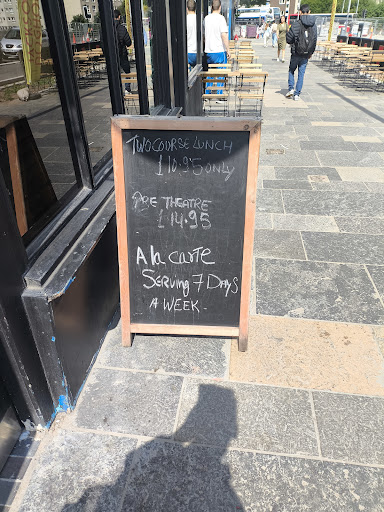 TWO COURSE LUNCH
£10.95 ONLY
PRE THEATRE
£14.95
A la carte
SERVING 7 DAYS
A WEEK.